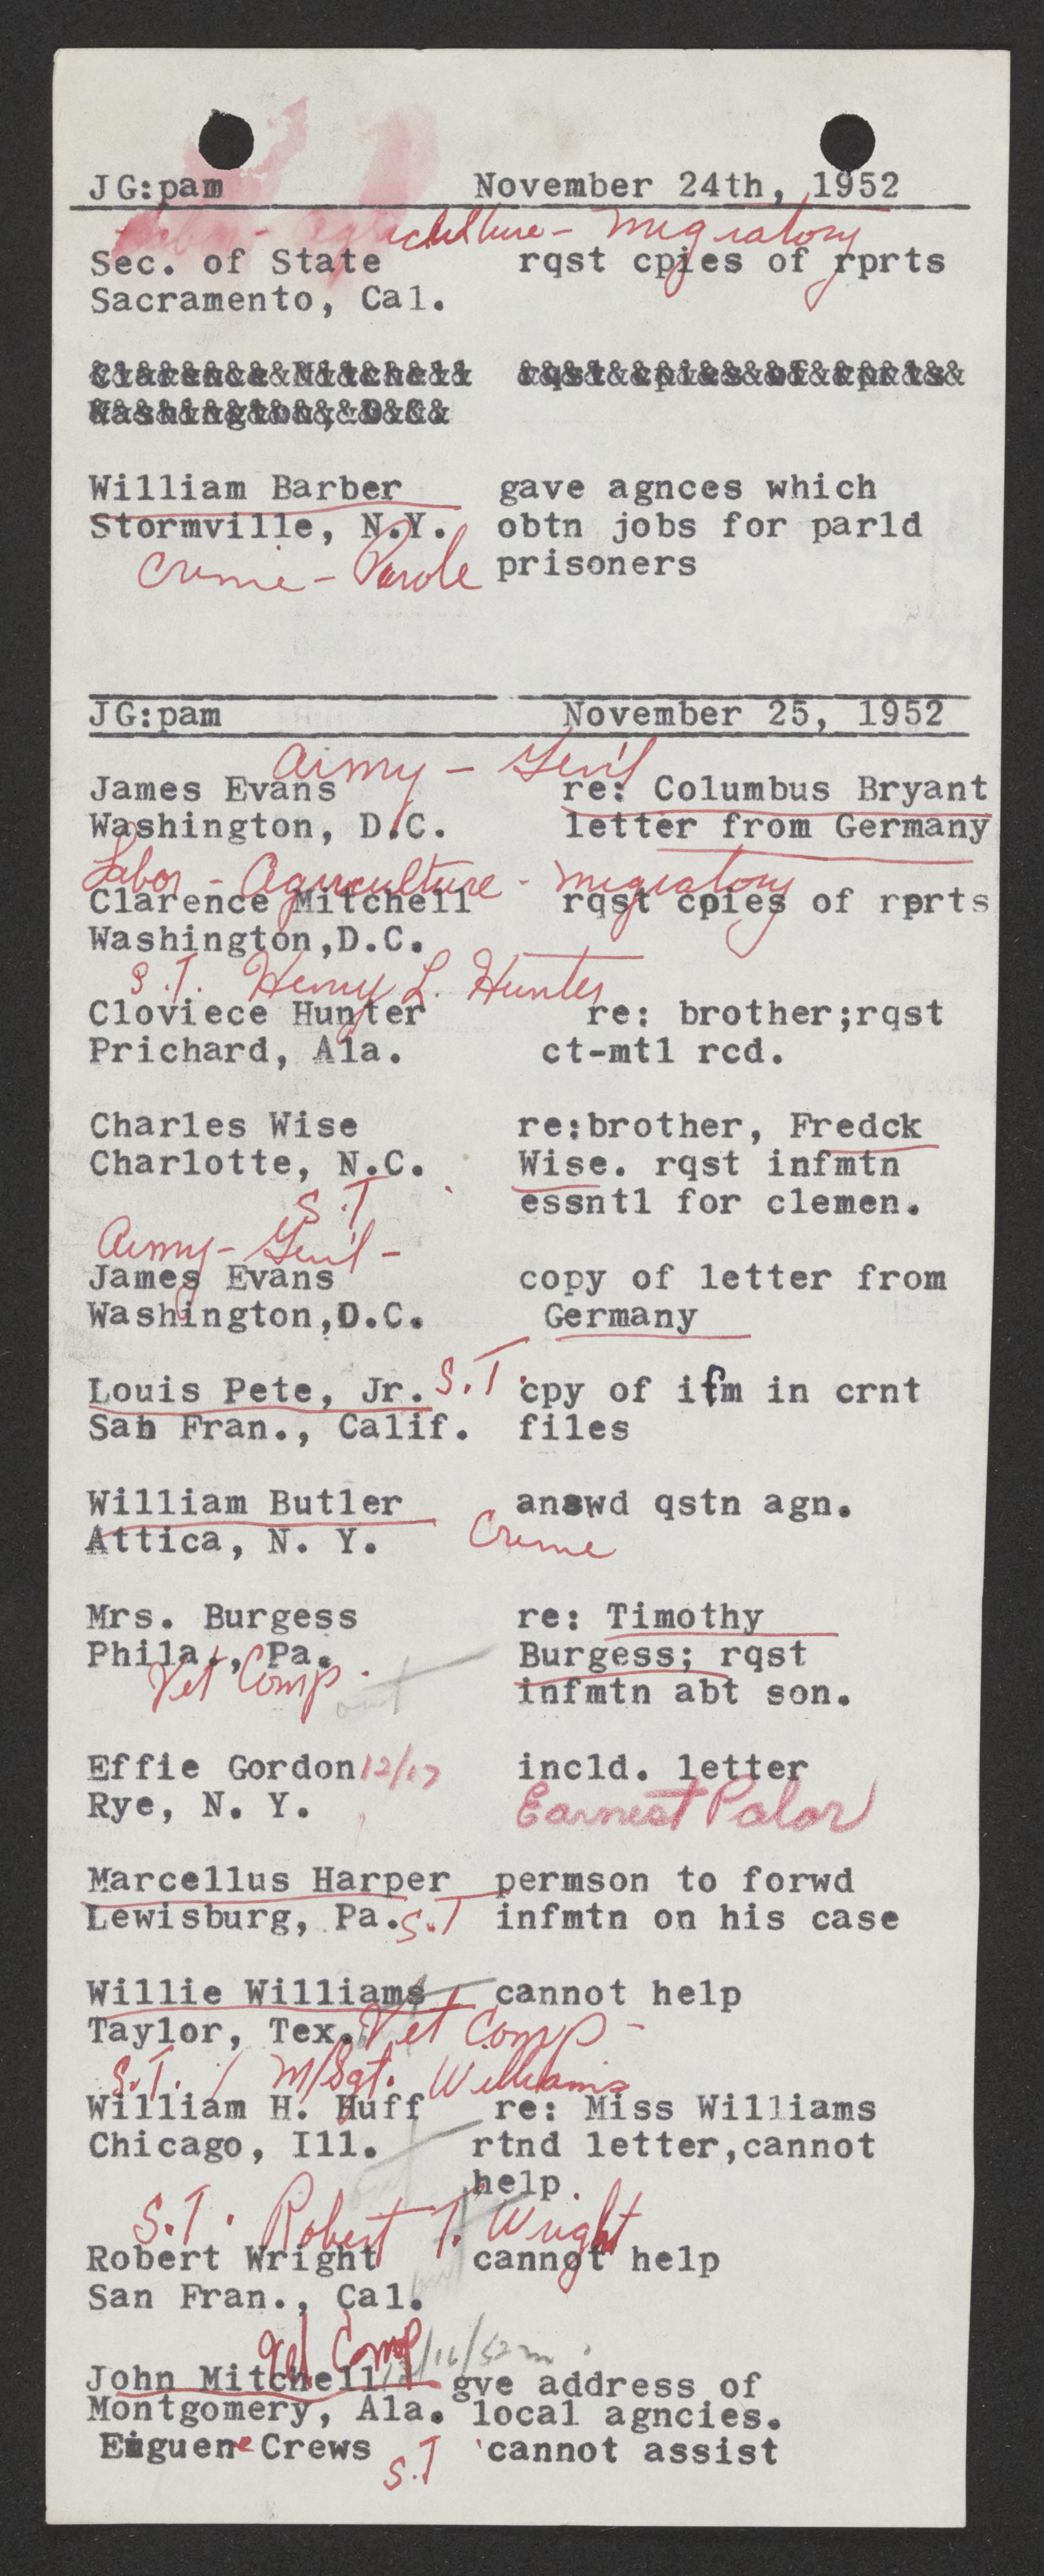 JG:pam November 24th, 1952
Labor - Agriculture - Migratory
Sec. of State rqst cpies of rprts
Sacramento, Cal.
Clarence Mitchell rqst cpies of rprts
Washington, D.C.
William Barber gave agnces which
Stormville, N.Y. obtn jobs for parld
Crime - Parole prisoners
JG:pam November 25, 1952
Army - Gen'l
James Evans re: Columbus Bryant
Washington, D.C. letter from Germany
Labor - Agriculture - Migratory
Clarence Mitchell rqst cpies of rprts
Washington,D.C.
S.T. Henry L. Hunter
Cloviece Hunter re: brother;rqst
Prichard, Ala. ct-mtl rcd.
Charles Wise re:brother, Fredck
Charlotte, N.C. Wise. rqst infmtn
S.T essntl for clemen.
Army - Gen'l -
James Evans copy of letter from
Washington,D.C. Germany
Louis Pete, Jr. S.T. cpy of ifm in crnt
San Fran., Calif. files
William Butler answd qstn agn.
Attica, N. Y. Crime
Mrs. Burgess re: Timothy
Phila., Pa. Burgess; rqst
Vet Comp. out infmtn abt son.
Effie Gordon 12/17 incld. letter
Rye, N. Y. Earnest Palor
Marcellus Harper permson to forwd
Lewisburg, Pa. S.T infmtn on his case
Willie Williams cannot help
Taylor, Tex. Vet Comp -
S.T. / M/Sgt. Williams
William H. Huff re: Miss Williams
Chicago, Ill. rtnd letter,cannot
out help.
S.T. Robert T. Wright
Robert Wright cannot help
San Fran., Cal. out
Vet Comp
John Mitchell gve address of
Montgomery, Ala. local agncies.
Euguene Crews S.T cannot assist